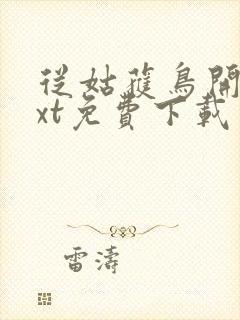 從姑蒦鳥開
xt免費下載
雷濤